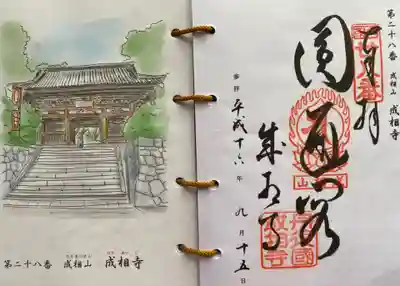 第二十八番 成相山 成相寺
第二十八番 成相山 成相寺
奉拝
圓通閣
成相寺
丹後國
成相寺
参拝 平成十六年 九月十五日